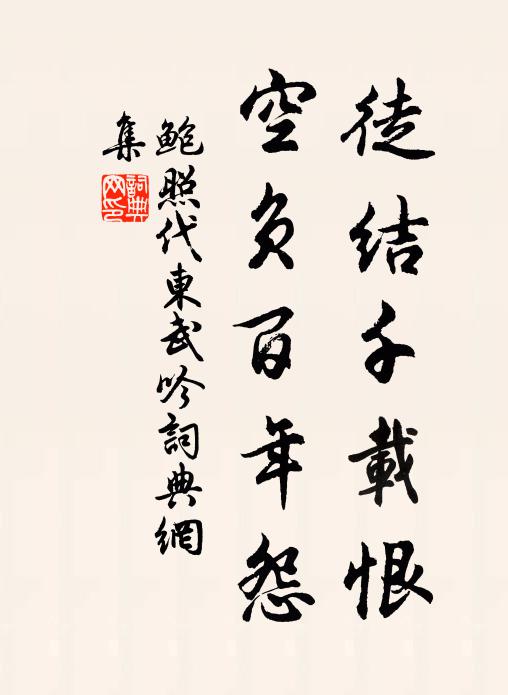 徒结千載恨
空负百年怨
鮑照代東武吟詞典網
集
詞典
网印